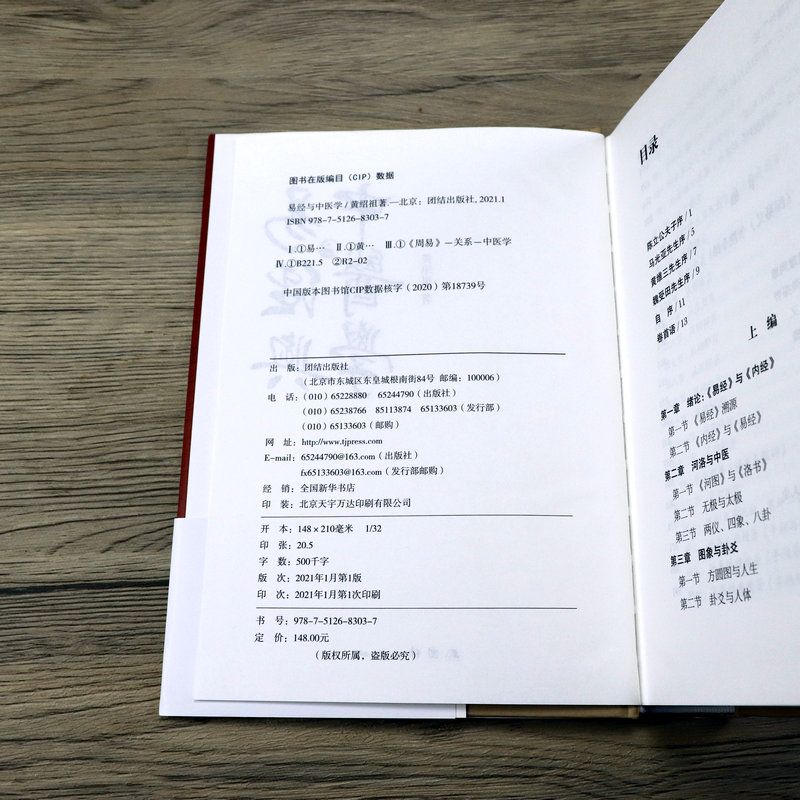 图书在版编目（CIP）数据
易经与中医学 / 黄绍祖著.—北京：团结出版社, 2021.1
ISBN 978-7-5126-8303-7
Ⅰ.①易… Ⅱ.①黄… Ⅲ.①《周易》－关系－中医学
Ⅳ.①B221.5 ②R2-02
中国版本图书馆CIP数据核字（2020）第18739号
出 版：团结出版社
（北京市东城区东皇城根南街84号 邮编：100006）
电 话：（010）65228880 65244790（出版社）
（010）65238766 85113874 65133603（发行部）
（010）65133603（邮购）
网 址：http://www.tjpress.com
E-mail：65244790@163.com（出版社）
fx65133603@163.com（发行部邮购）
经 销：全国新华书店
印 装：北京天宇万达印刷有限公司
开 本：148×210毫米 1/32
印 张：20.5
字 数：500千字
版 次：2021年1月第1版
印 次：2021年1月第1次印刷
书 号：978-7-5126-8303-7
定 价：148.00元
（版权所属，盗版必究）
目录
陈立公夫子序 / 1
马光亚先生序 / 5
黄维三先生序 / 7
魏受田先生序 / 9
自 序 / 11
卷首语 / 13
上 编
第一章 绪论：《易经》与《内经》
第一节 《易经》溯源
第二节 《内经》与《易经》
第二章 河洛与中医
第一节 《河图》与《洛书》
第二节 无极与太极
第三节 两仪、四象、八卦
第三章 图象与卦爻
第一节 方圆图与人生
第二节 卦爻与人体